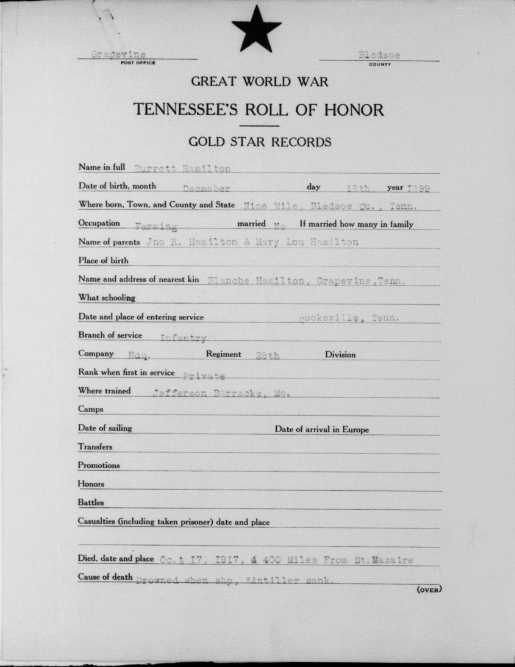 Grapevine Bledsoe
POST OFFICE COUNTY
GREAT WORLD WAR
TENNESSEE'S ROLL OF HONOR
GOLD STAR RECORDS
Name in full Burrett Hamilton
Date of birth, month Decmeber day 18th year 1899
Where born, Town, and County and State Nine Mile, Bledsoe Co., Tenn.
Occupation Farming married No If married how many in family
Name of parents Jno R. Hamilton & Mary Lou Hamilton
Place of birth
Name and address of nearest kin Blanche Hamilton, Grapevine,Tenn.
What schooling
Date and place of entering service Cookeville, Tenn.
Branch of service Infantry
Company Hdq. Regiment 28th Division
Rank when first in service Private
Where trained Jefferson Barracks, Mo.
Camps
Date of sailing Date of arrival in Europe
Transfers
Promotions
Honors
Battles
Casualties (including taken prisoner) date and place
Died, date and place Oc.t 17, 1917, & 400 Miles From St.Nazaire
Cause of death Drowned when shp, "Antiller sank.
(OVER)